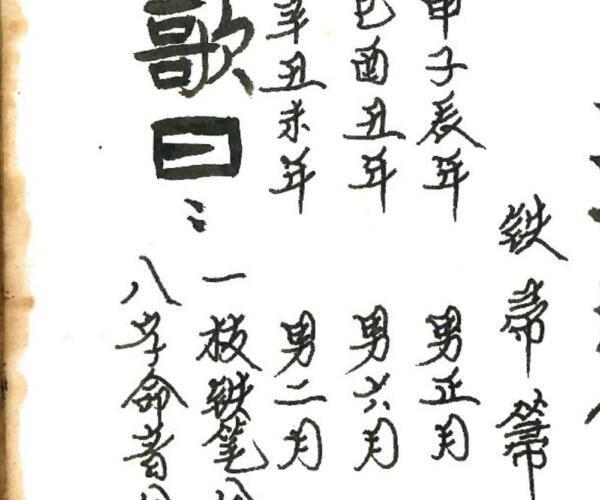 铁帚箒
申子辰年 男正月
巳酉丑年 男六月
丑未年 男二月
歌曰：
一枝铁笔
八字命